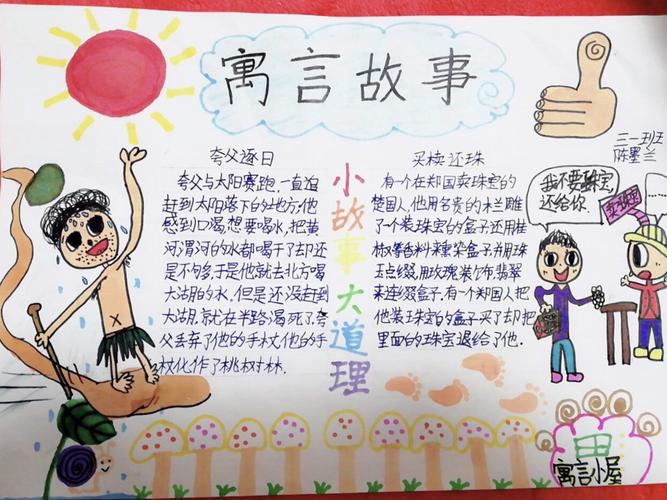 寓言故事
三一班
陈墨兰
夸父逐日
夸父与太阳赛跑,一直追
赶到太阳落下的地方,他
感到口渴,想要喝水,把黄
河渭河的水都喝干了却还
是不够,于是他就去北方喝
大湖的水,但是还没赶到
大湖,就在半路渴死了,夸
父丢弃了他的手杖,他的手
杖化作了桃树林.
小故事大道理
买椟还珠
有一个在郑国卖珠宝的
楚国人,他用名贵的木兰雕
了一个装珠宝的盒子还用桂
椒等香料来熏染盒子并用珠
玉点缀,用玫瑰装饰,翡翠
来连缀盒子,有一个郑国人把
他装珠宝的盒子买了却把
里面的珠宝退给了他.
我不要珠宝,
还给你.
寓言小屋